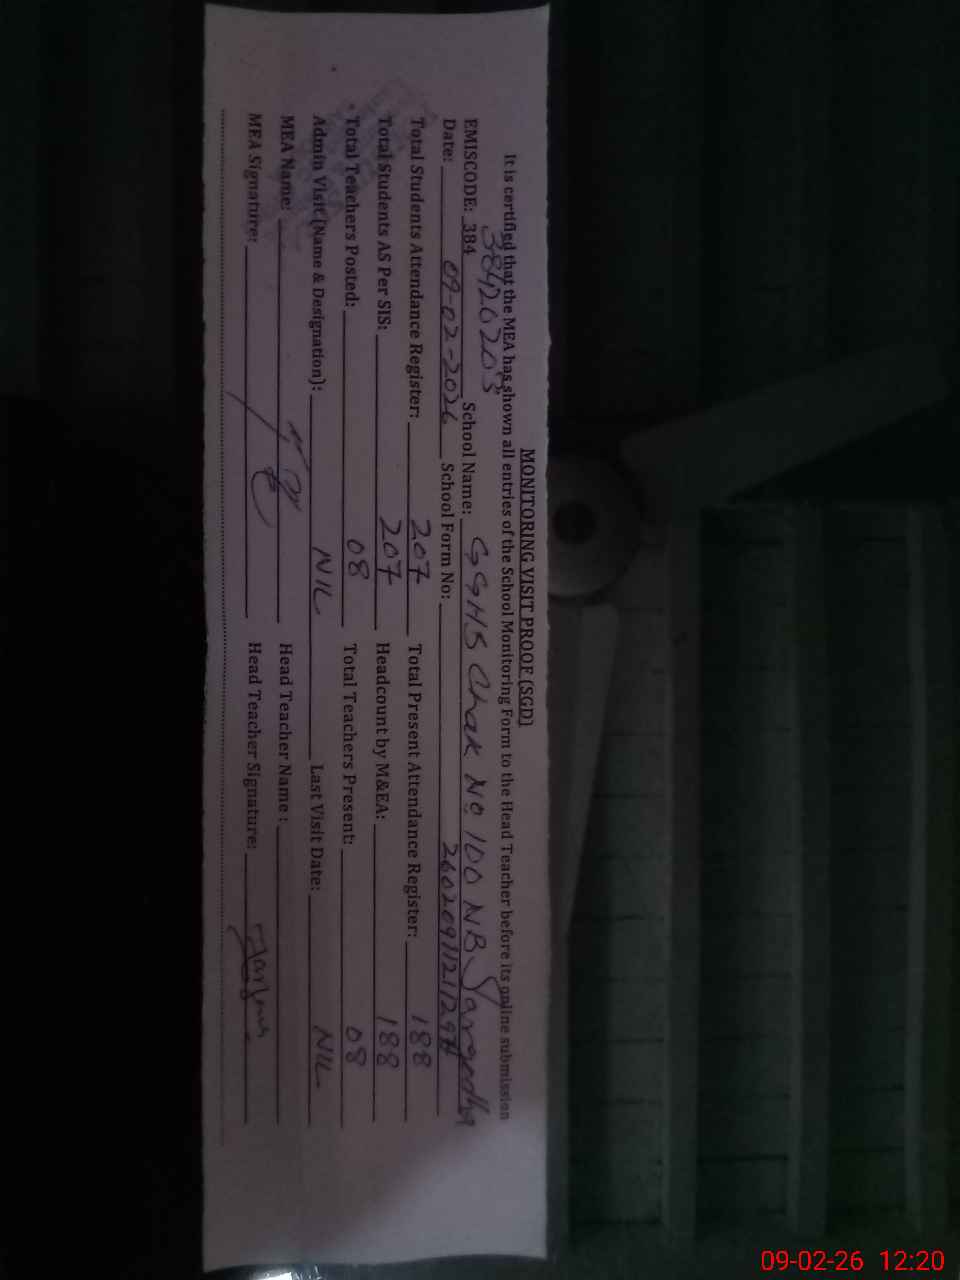 MONITORING VISIT PROOF (SGD)
It is certified that the MEA has shown all entries of the School Monitoring Form to the Head Teacher before its online submission
38420203
EMISCODE: 384 School Name: GGHS Chak No 100 NB Sargodha
Date: 09-02-2026 School Form No:
Total Students Attendance Register: 207 Total Present Attendance Register: 188
Total Students AS Per SIS: 207 Headcount by M&EA: 188
Total Teachers Posted: 08 Total Teachers Present: 08
Admin Visit (Name & Designation): NIL Last Visit Date: NIL
MEA Name: Head Teacher Name :
MEA Signature: Head Teacher Signature:
09-02-26 12:20